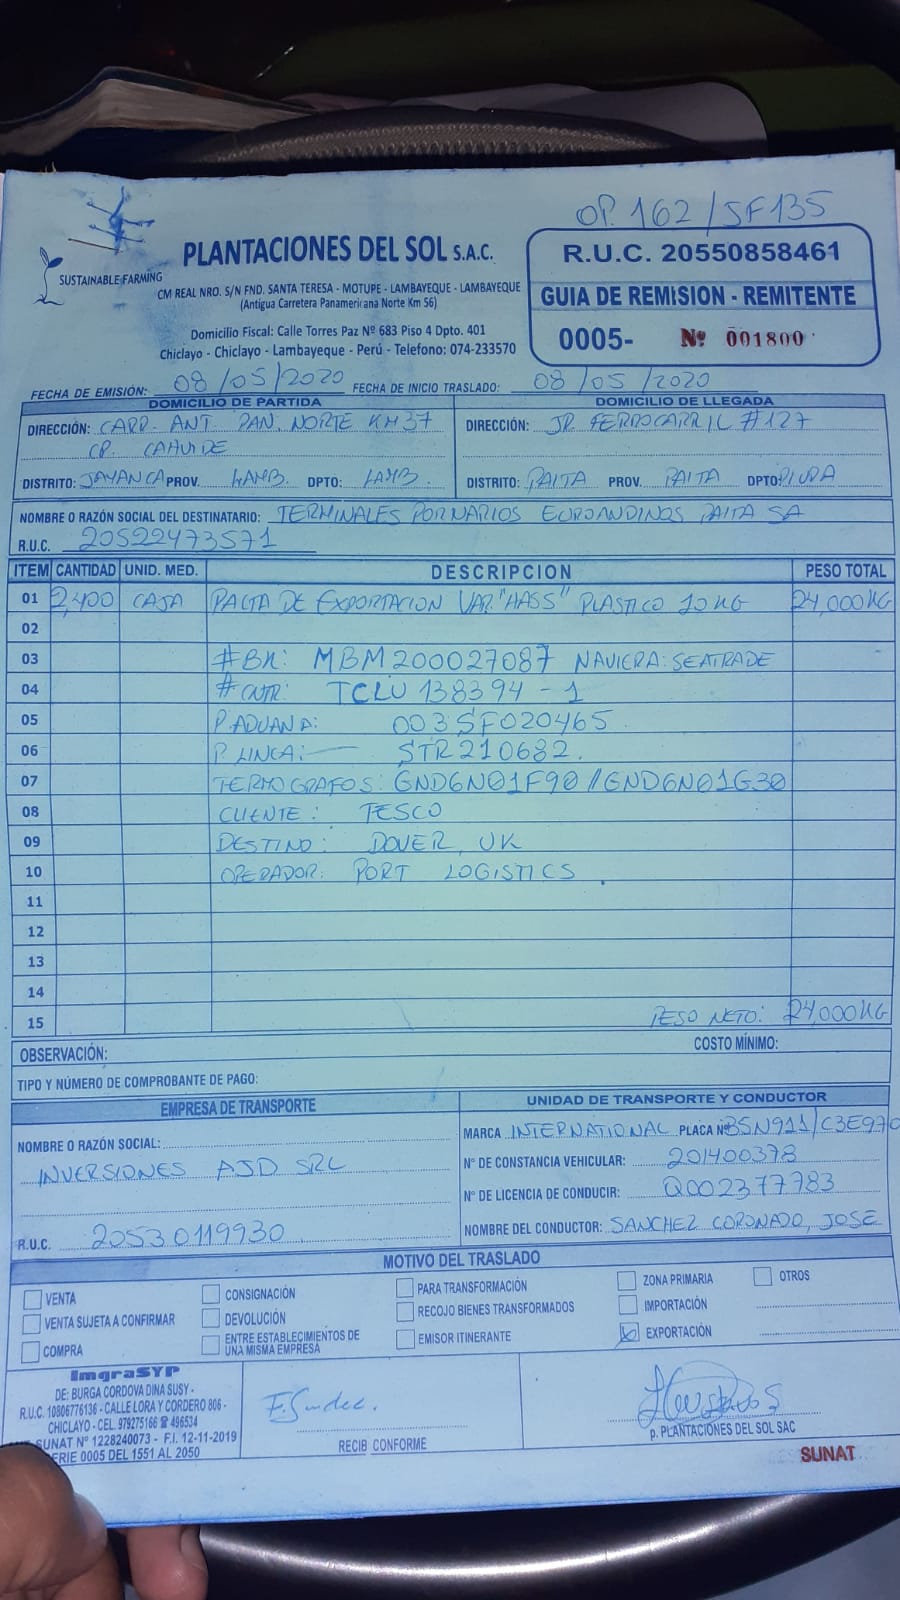 OP. 162/SF135
SUSTAINABLE FARMING
PLANTACIONES DEL SOL S.A.C.
CM REAL NRO. S/N FND. SANTA TERESA - MOTUPE - LAMBAYEQUE - LAMBAYEQUE
(Antigua Carretera Panamericana Norte Km 56)
Domicilio Fiscal: Calle Torres Paz Nº 683 Piso 4 Dpto. 401
Chiclayo - Chiclayo - Lambayeque - Perú - Telefono: 074-233570
R.U.C. 20550858461
GUIA DE REMISION - REMITENTE
0005- Nº 001800
FECHA DE EMISIÓN: 08/05/2020 FECHA DE INICIO TRASLADO: 08/05/2020
DOMICILIO DE PARTIDA
DIRECCIÓN: CARR. ANT. PAN. NORTE KM37
CP. CAHUIDE
DISTRITO: JAYANCA PROV. LAMB. DPTO: LAMB.
DOMICILIO DE LLEGADA
DIRECCIÓN: JR. FERROCARRIL #127
DISTRITO: PAITA PROV. PAITA DPTO: PIURA
NOMBRE O RAZÓN SOCIAL DEL DESTINATARIO: TERMINALES PORNARIOS EUROANDINOS PAITA SA
R.U.C. 20522473571
ITEM CANTIDAD UNID. MED. DESCRIPCION PESO TOTAL
01 2,400 CAJA PALTA DE EXPORTACION VAR. "HASS" PLASTICO 10KG 24,000KG
02
03 #BK: MBM200027087 NAVIERA: SEATRADE
04 #CNTR: TCLU 138394-1
05 P. ADUANA: 003SF020465
06 P. LINEA: STR210682.
07 TERMOGRAFOS: GND6N01F90//GND6N01G30
08 CLIENTE: TESCO
09 DESTINO: DOVER, UK
10 OPERADOR: PORT LOGISTICS.
11
12
13
14
15 PESO NETO: 24,000KG
OBSERVACIÓN: COSTO MÍNIMO:
TIPO Y NÚMERO DE COMPROBANTE DE PAGO:
EMPRESA DE TRANSPORTE
NOMBRE O RAZÓN SOCIAL:
INVERSIONES AJD SRL
R.U.C. 20530119930
UNIDAD DE TRANSPORTE Y CONDUCTOR
MARCA INTERNATIONAL PLACA Nº B5N911/C3E970
Nº DE CONSTANCIA VEHICULAR: 201400378
Nº DE LICENCIA DE CONDUCIR: Q002377783
NOMBRE DEL CONDUCTOR: SANCHEZ CORONADO, JOSE
MOTIVO DEL TRASLADO
VENTA
VENTA SUJETA A CONFIRMAR
COMPRA
CONSIGNACIÓN
DEVOLUCIÓN
ENTRE ESTABLECIMIENTOS DE
UNA MISMA EMPRESA
PARA TRANSFORMACIÓN
RECOJO BIENES TRANSFORMADOS
EMISOR ITINERANTE
ZONA PRIMARIA
IMPORTACIÓN
EXPORTACIÓN
OTROS
ImgraSYP
DE: BURGA CORDOVA DINA SUSY -
R.U.C. 10806776136 - CALLE LORA Y CORDERO 806 -
CHICLAYO - CEL. 979275166 ☎ 496534
SUNAT Nº 1228240073 - F.I. 12-11-2019
SERIE 0005 DEL 1551 AL 2050
RECIB CONFORME
p. PLANTACIONES DEL SOL SAC
SUNAT